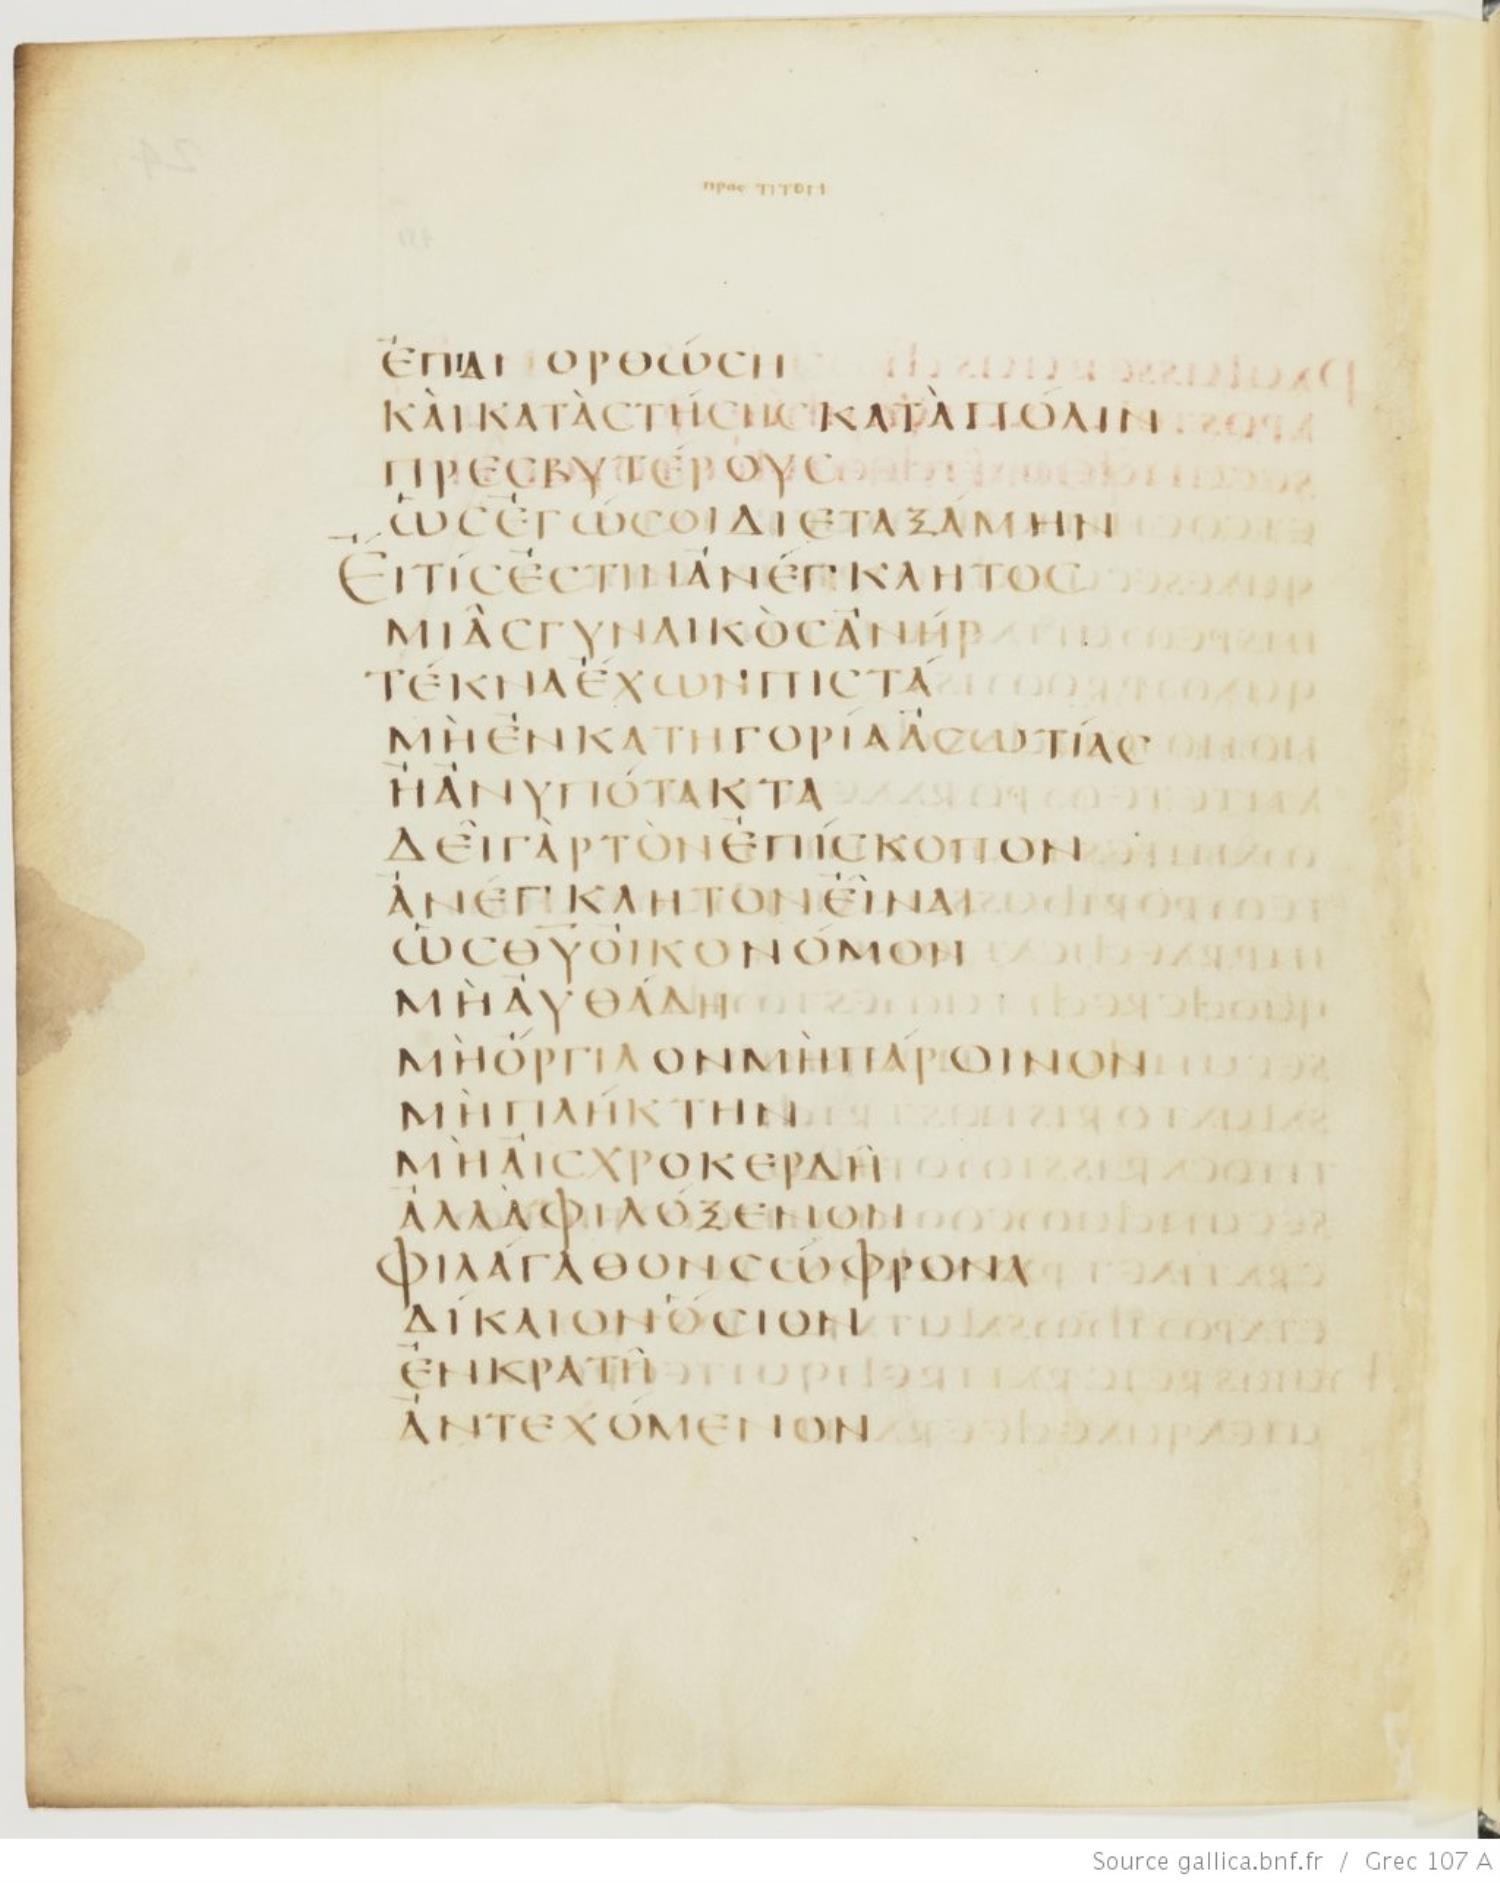 προς τιτον
ἘΠΙΔΙΟΡΘΏΣΗ
ΚΑῚΚΑΤᾺΣΤΉΣΗΣΚΑΤᾺΠΌΛΙΝ
ΠΡΕΣΒΥΤΈΡΟΥΣ
ὩΣἘΓΏΣΟΙΔΙΕΤΑΞΆΜΗΝ
ΕἼΤΊΣἘΣΤΙΝἈΝΈΓΚΛΗΤΟΣ
ΜΙΑ͂ΣΓΥΝΑΙΚῸΣἈΝΉΡ
ΤΈΚΝΑἜΧΩΝΠΙΣΤΆ
ΜῊἘΝΚΑΤΗΓΟΡΊΑἈΣΩΤΊΑΣ
ἨἈΝΥΠΌΤΑΚΤΑ
ΔΕΙ͂ΓᾺΡΤῸΝἘΠΊΣΚΟΠΟΝ
ἈΝΈΓΚΛΗΤΟΝΕἾΝΑΙ
ὩΣΘΥΟἸΚΟΝΌΜΟΝ
ΜῊἈΥΘΆΔΗ
ΜῊὌΡΓΙΛΟΝΜῊΠΆΡΟΙΝΟΝ
ΜῊΠΛΉΚΤΗΝ
ΜῊἈΙΣΧΡΟΚΕΡΔΗ͂
ἈΛΛᾺΦΙΛΌΞΕΝΟΝ
ΦΙΛΆΓΑΘΟΝΣΏΦΡΟΝΑ
ΔΊΚΑΙΟΝὍΣΙΟΝ
ἘΝΚΡΑΤΗ͂
ἈΝΤΕΧΌΜΕΝΟΝ
Source gallica.bnf.fr / Grec 107 A